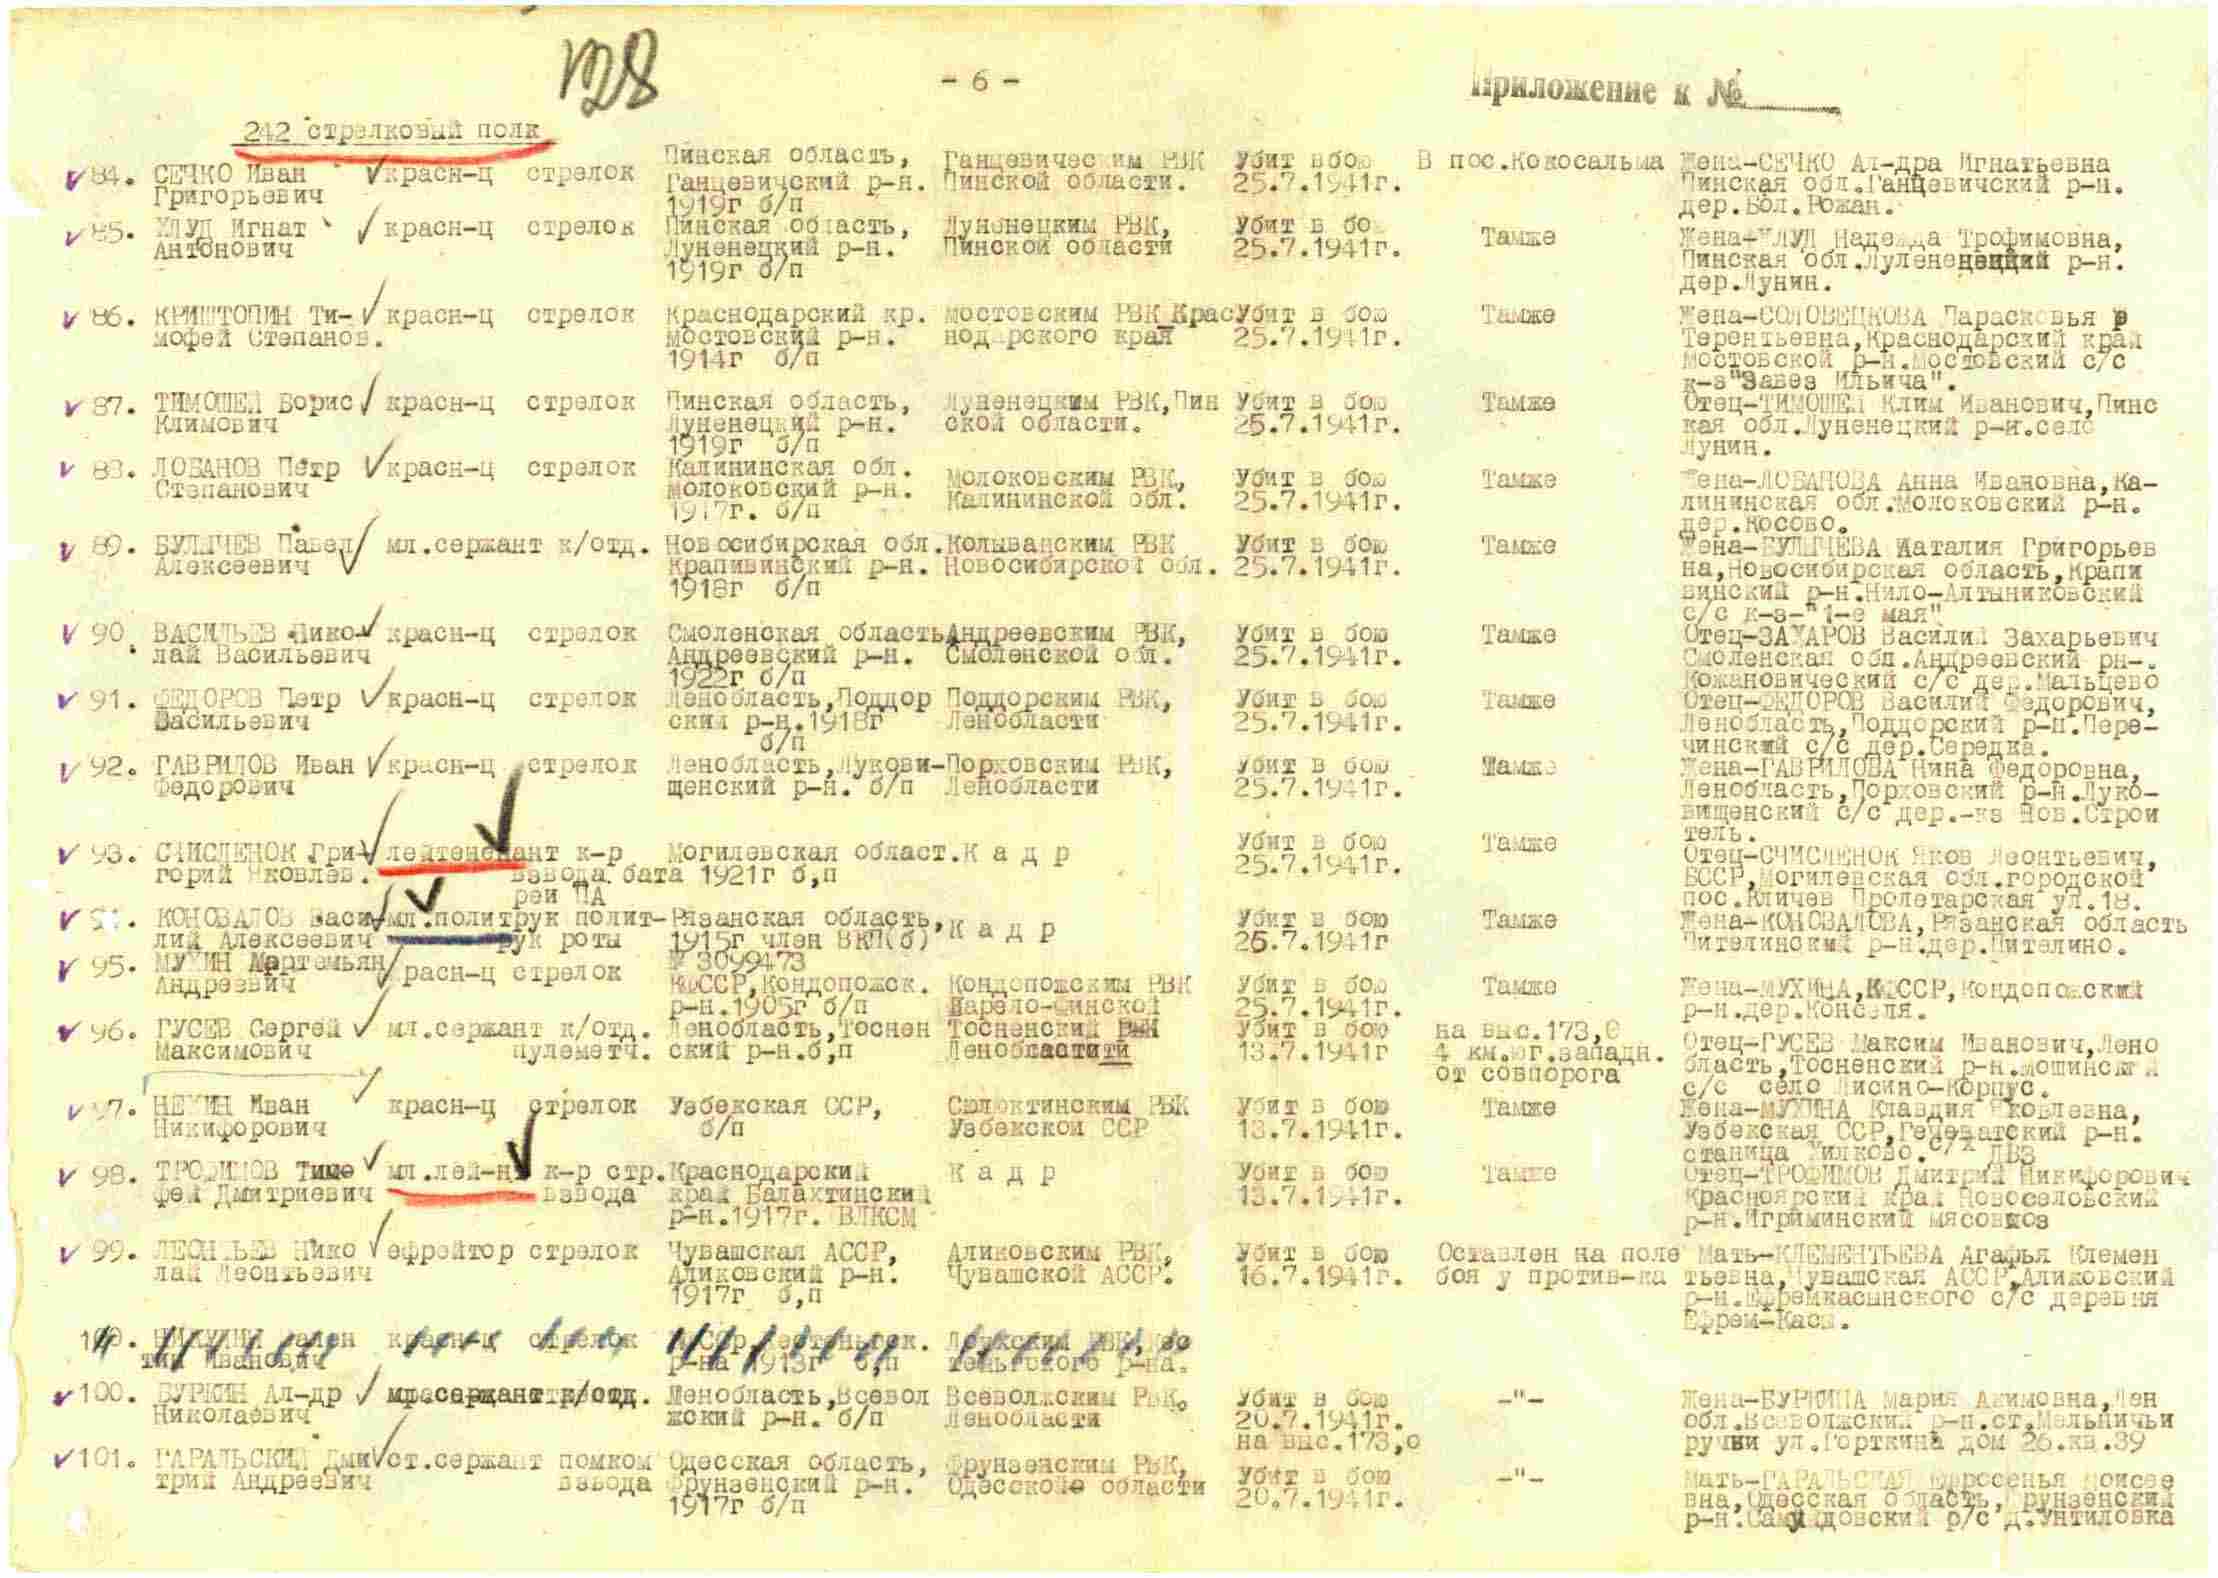 128
- 6 -
Приложение к №
242 стрелковый полк
84. СЕЧКО Иван Григорьевич красн-ц стрелок Пинская область, Ганцевичский р-н. 1919г б/п Ганцевическим РВК Пинской области. Убит вбою 25.7.1941г. В пос.Кокосальма Жена-СЕЧКО Ал-дра Игнатьевна Пинская обл.Ганцевичский р-н. дер.Бол.Рожан.
85. ХЛУД Игнат Антонович красн-ц стрелок Пинская область, Луненецкий р-н. 1919г б/п Луненецким РВК, Пинской области Убит в бою 25.7.1941г. Тамже Жена-ХЛУД Надежда Трофимовна, Пинская обл. р-н. дер.Лунин.
86. КРИШТОПИН Ти- мофей Степанов. красн-ц стрелок Краснодарский кр. мостовский р-н. 1914г б/п мостовским РВК Крас нодарского края Убит в бою 25.7.1941г. Тамже Жена-СОЛОВЕЦКОВА Парасковья Терентьевна,Краснодарский край мостовской р-н.мостовский с/с к-з"Завез Ильича".
87. ТИМОШЕЙ Борис Климович красн-ц стрелок Пинская область, Луненецкий р-н. 1919г б/п Луненецким РВК,Пин ской области. Убит в бою 25.7.1941г. Тамже Отец-ТИМОШЕЙ Клим Иванович,Пинс кая обл.Луненецкий р-н.село Лунин.
88. ЛОБАНОВ Петр Степанович красн-ц стрелок Калининская обл. молоковский р-н. 1917г. б/п Молоковским РВК, Калининской обл. Убит в бою 25.7.1941г. Тамже Жена-ЛОБАНОВА Анна Ивановна,Ка- лининская обл.молоковский р-н. дер.Косово.
89. БУЛЫЧЕВ Павел Алексеевич мл.сержант к/отд. Новосибирская обл. Крапивинский р-н. 1918г б/п Колыванским РВК Новосибирской обл. Убит в бою 25.7.1941г. Тамже Жена-БУЛЫЧЕВА Наталия Григорьев на,Новосибирская область,Крапи винский р-н.Нило-Алтыниковский с/с к-з-"1-е мая"
90. ВАСИЛЬЕВ Нико- лай Васильевич красн-ц стрелок Смоленская область Андреевский р-н. 1922г б/п Андреевским РВК, Смоленской обл. Убит в бою 25.7.1941г. Тамже Отец-ЗАХАРОВ Василий Захарьевич Смоленская обл.Андреевский рн-. Кожановический с/с дер.Мальцево
91. ФЕДОРОВ Петр Васильевич красн-ц стрелок Ленобласть,Поддор ский р-н.1918г б/п Поддорским РВК, Ленобласти Убит в бою 25.7.1941г. Тамже Отец-ФЕДОРОВ Василий Федорович, Ленобласть,Поддорский р-н.Пере- чинский с/с дер.Середка.
92. ГАВРИЛОВ Иван Федорович красн-ц стрелок Ленобласть,Лукови- щенский р-н. б/п Порховским РВК, Ленобласти Убит в бою 25.7.1941г. Тамже Жена-ГАВРИЛОВА Нина Федоровна, Ленобласть,Порховский р-н.Луко- вищенский с/с дер.-кз Нов.Строи тель.
93. СЧИСЛЕНОК Гри- горий Яковлев. лейтененант к-р взвода бата реи ПА Могилевская област. 1921г б,п К а д р Убит в бою 25.7.1941г. Тамже Отец-СЧИСЛЕНОК Яков Леонтьевич, БССР,Могилевская обл.городской пос.Кличев Пролетарская ул.18.
94. КОНОВАЛОВ Васи- лий Алексеевич мл.политрук полит- рук роты Рязанская область, 1915г член ВКП(б) № 3099473 К а д р Убит в бою 26.7.1941г Тамже Жена-КОНОВАЛОВА,Рязанская область Пителинский р-н.дер.Пителино.
95. МУХИН Мартемьян Андреевич красн-ц стрелок КФССР,Кондопожск. р-н.1905г б/п Кондопожским РВК Карело-Финской Убит в бою 25.7.1941г. Тамже Жена-МУХИНА,КФССР,Кондопожский р-н.дер.Конселя.
96. ГУСЕВ Сергей Максимович мл.сержант к/отд. пулеметч. Ленобласть,Тоснен ский р-н.б,п Тосненский РВК Убит в бою 13.7.1941г на выс.173,0 4 км.юг.западн. от совпорога Отец-ГУСЕВ Максим Иванович,Лено бласть,Тосненский р-н. с/с село Лисино-Корпус.
97. НЕХИН Иван Никифорович красн-ц стрелок Узбекская ССР, б/п Сюлюктинским РВК Узбекской ССР Убит в бою 13.7.1941г. Тамже Жена-МУХИНА Клавдия Яковлевна, Узбекская ССР, р-н. станица Хилково. с/х ДВЗ
98. ТРОФИМОВ Тимо фей Дмитриевич мл.лей-нт к-р стр. взвода Краснодарский край Балахтинский р-н.1917г. ВЛКСМ К а д р Убит в бою 13.7.1941г. Тамже Отец-ТРОФИМОВ Дмитрий Никифорович Красноярский край Новоселовский р-н.Игриминский мясовхоз
99. ЛЕОНТЬЕВ Нико лай Леонтьевич ефрейтор стрелок Чувашская АССР, Аликовский р-н. 1917г б,п Аликовским РВК, Чувашской АССР. Убит в бою 16.7.1941г. Оставлен на поле боя у против-ка Мать-КЛЕМЕНТЬЕВА Агафья Клемен тьевна,Чувашская АССР,Аликовский р-н.Ефремкасынского с/с деревня Ефрем-Касы.
100. Иванович красн-ц стрелок р-на 1913г б,п р-на.
100. БУРКИН Ал-др Николаевич мл.сержант к/отд. Ленобласть,Всевол жский р-н. б/п Всеволжским РВК. Ленобласти Убит в бою 20.7.1941г. на выс.173,0 -"- Жена-БУРКИНА Мария Акимовна,Лен обл.Всеволжский р-н.ст.Мельничьи ручьи ул.Горткина дом 26.кв.39
101. ГАРАЛЬСКИЙ Дми трий Андреевич ст.сержант помком взвода Одесская область, Фрунзенский р-н. 1917г б/п Фрунзенским РВК, Одесской области Убит в бою 20.7.1941г. -"- Мать-ГАРАЛЬСКАЯ Ефросенья Моисее вна,Одесская область,Фрунзенский р-н. р/с д.Унтиловка